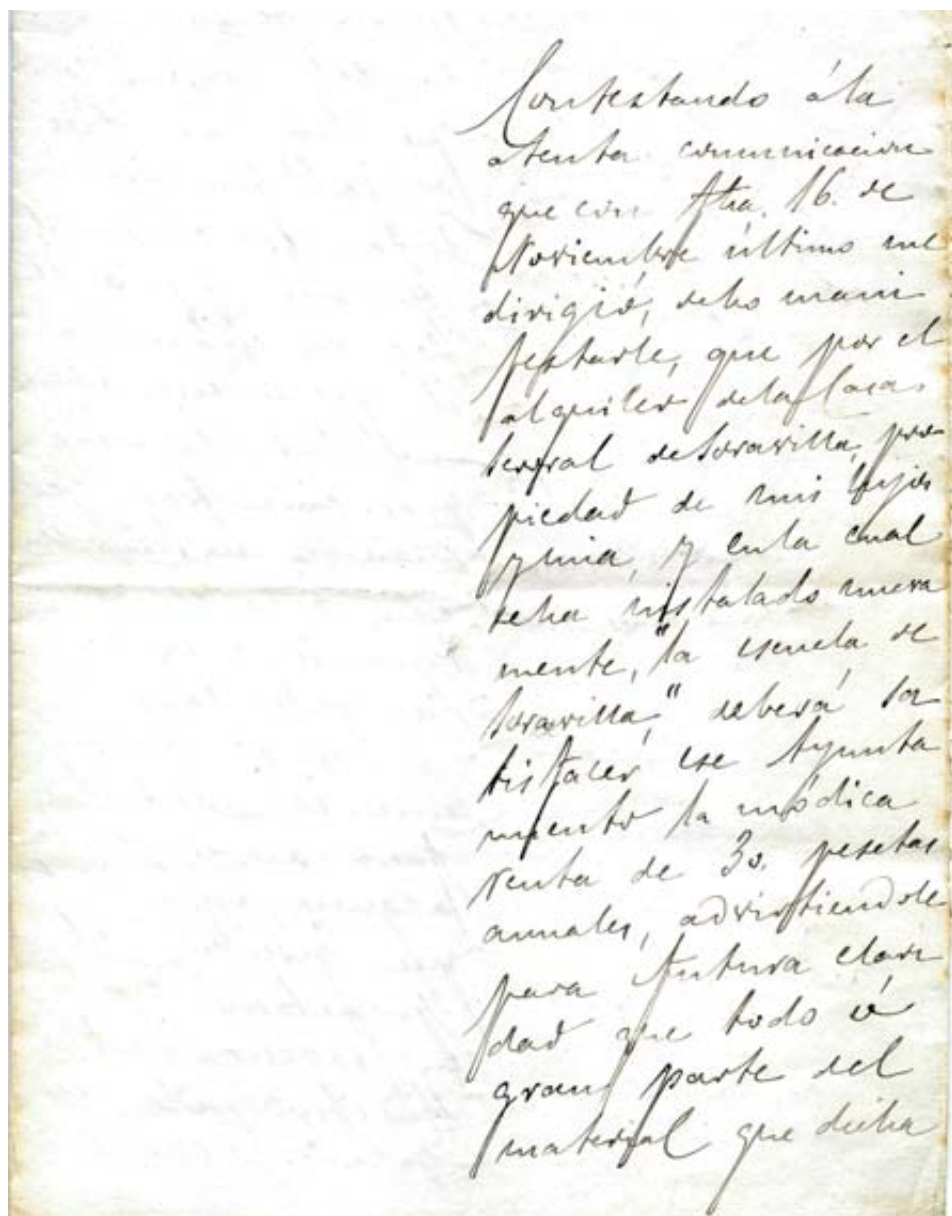 Contestando á la
atenta comunicacion
que con fha. 16. de
Noviembre último me
dirigió, debo mani
festarle, que por el
alquiler de la Casa
serroral de Soravilla, pro
piedad de mis hijos
y mia, y en la cual
se ha instalado nueva
mente, "la escuela de
Soravilla," deberá sa
tisfacer ese Ayunta
miento la módica
renta de 30. pesetas
anuales, advirtiendole
para futura clari
dad que todo ó
gran parte del
material que dicha